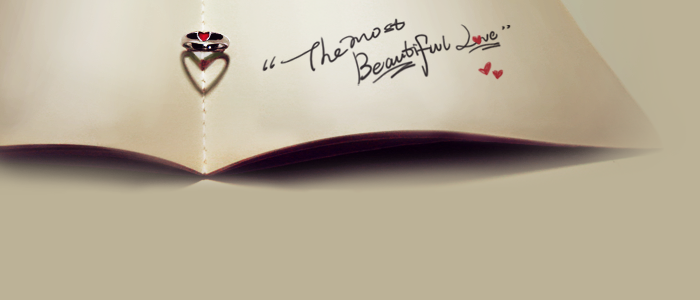 “The most
Beautiful Love”